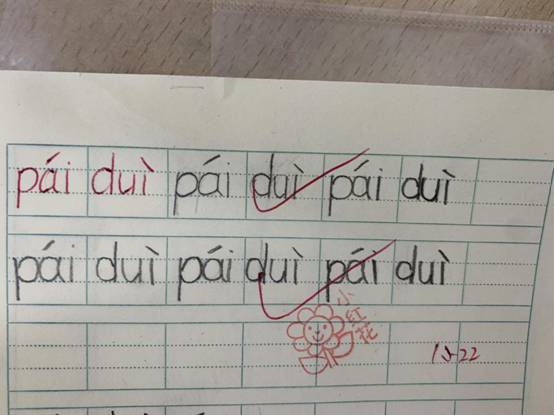 pái duì pái duì pái duì
pái duì pái duì pái duì
小红花